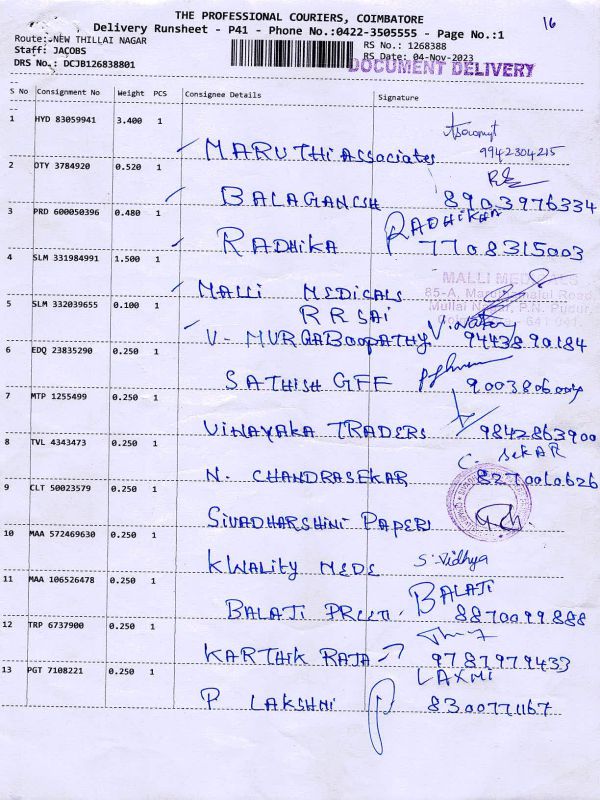 THE PROFESSIONAL COURIERS, COIMBATORE
16
Delivery Runsheet - P41 - Phone No.:0422-3505555 - Page No.:1
Route: NEW THILLAI NAGAR
RS No.: 1268388
Staff: JACOBS
RS Date: 04-Nov-2023
DRS No.: DCJB126838801
DOCUMENT DELIVERY
S No Consignment No Weight PCS Consignee Details Signature
1 HYD 83059941 3.400 1
MARUTHI ASSOCIATES 9942304215
2 DTY 3784920 0.520 1
BALAGANESH 8903976334
3 PRD 600050396 0.480 1
RADHIKA RADHIKA 7708315003
4 SLM 331984991 1.500 1
MALLI MEDICALS
MALLI MEDICALS
5 SLM 332039655 0.100 1
RR SAI
V- MURGABOOPATHY 9443890184
6 EDQ 23835290 0.250 1
SATHISH GFF
7 MTP 1255499 0.250 1
VINAYAKA TRADERS 9842863900
8 TVL 4343473 0.250 1
C. SEKAR
N. CHANDRASEKAR 8270010626
9 CLT 50023579 0.250 1
SIVADHARSHINI PAPERS
10 MAA 572469630 0.250 1
KWALITY MEDS S. Vidhya
11 MAA 106526478 0.250 1
BALAJI
BALAJI PREETI. 8870099888
12 TRP 6737900 0.250 1
KARTHIK RAJA 9787979433
13 PGT 7108221 0.250 1
LAXMI
P LAKSHMI 8300771167